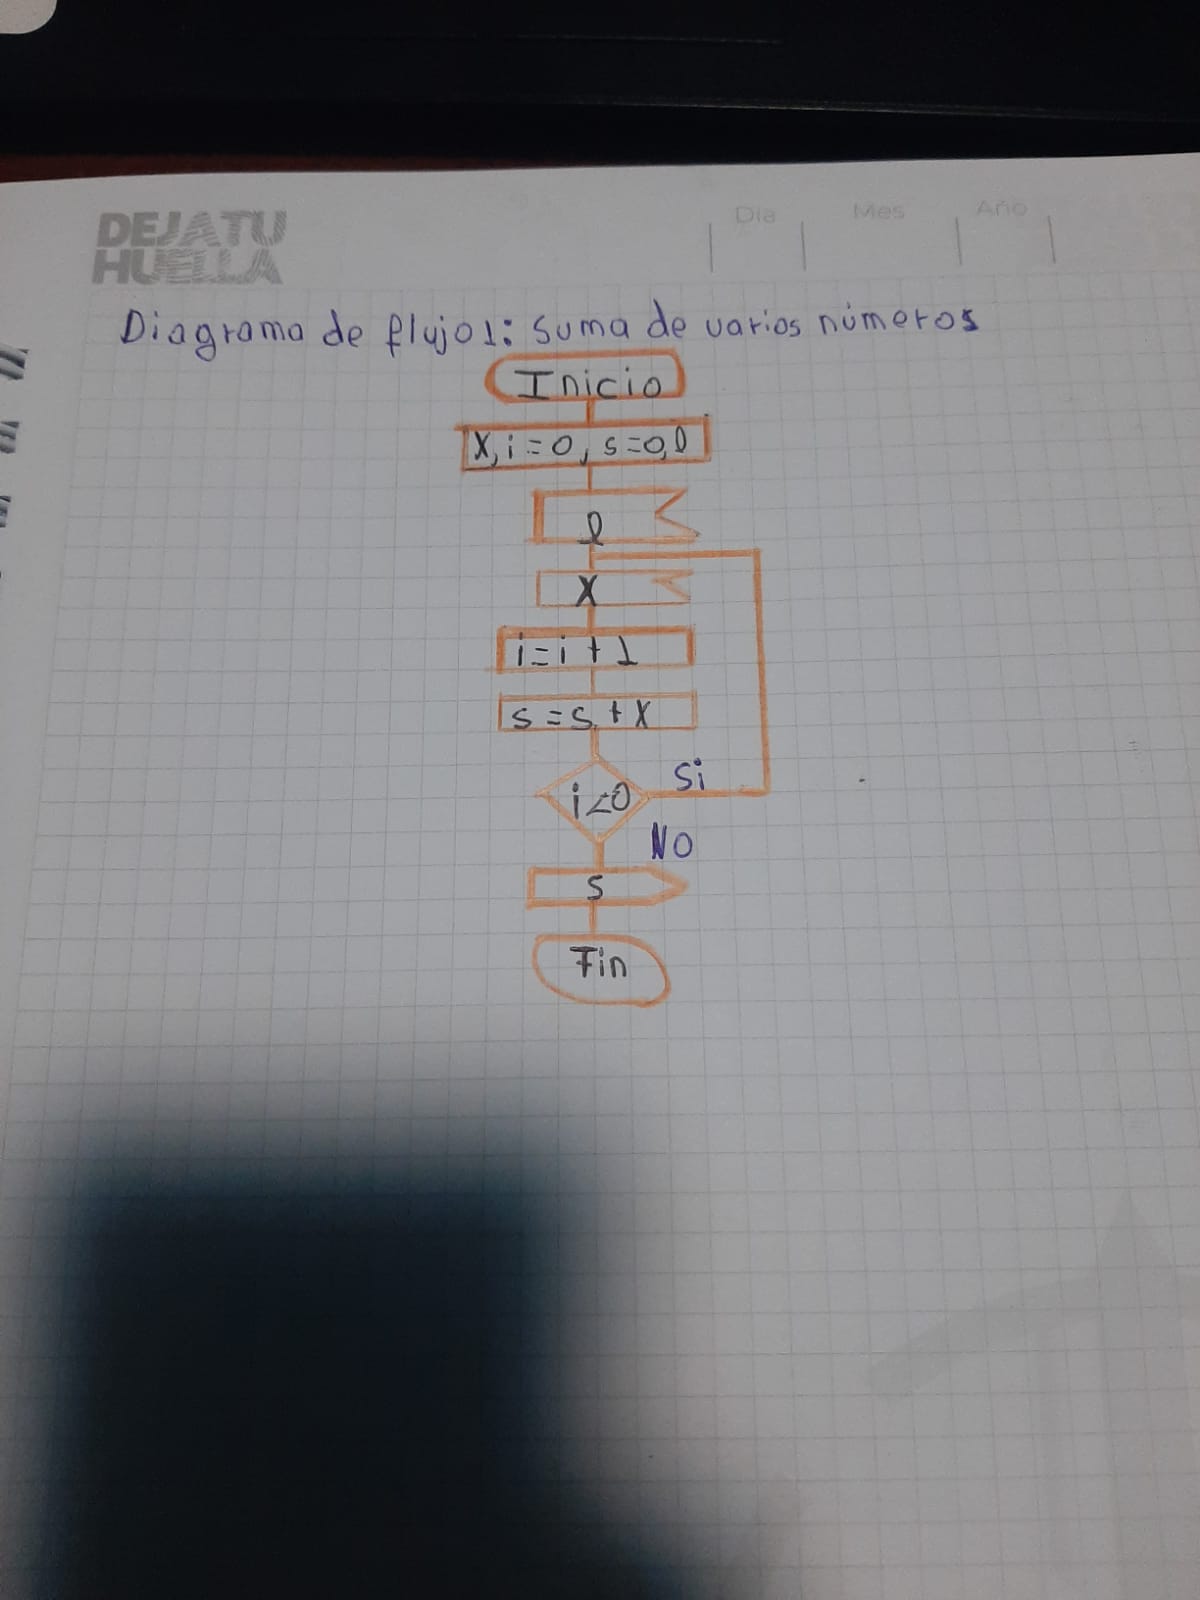 DEJA TU
HUELLA
Dia Mes Año
Diagrama de flujo1: Suma de varios números
Inicio
X, i=0, s=0,l
l
X
i=i+1
s=s+X
i<0
Si
NO
s
Fin